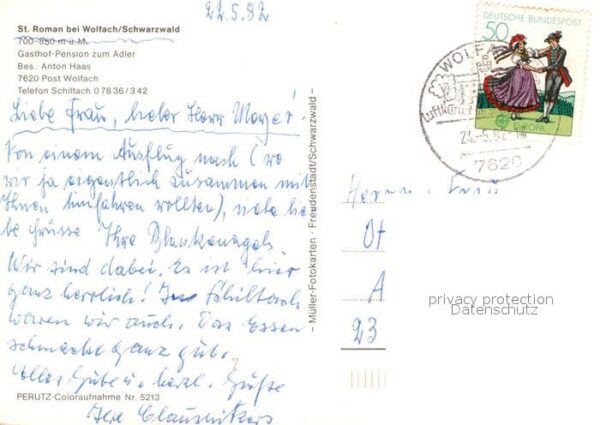 22.5.82
St. Roman bei Wolfach/Schwarzwald
700-850 m ü.M.
Gasthof-Pension zum Adler
Bes.: Anton Haas
7620 Post Wolfach
Telefon Schiltach 0 78 36 / 3 42
Liebe Frau, lieber Herr
Von einem Ausflug nach (wo
wir ja eigentlich zusammen mit
Ihnen hinfahren wollten),
Grüsse Ihre Blankenagels.
Wir sind dabei. Es ist hier
ganz herrlich! In Schiltach
waren wir auch. Das Essen
schmeckt ganz gut.
Alles Gute u. herzl. Grüße
Ihre
PERUTZ-Coloraufnahme Nr. 5213
– Müller-Fotokarten · Freudenstadt/Schwarzwald –
DEUTSCHE BUNDESPOST
50
EUROPA
WOLF
Luftkurort
7620
Herrn Frau
Ot
A
23
privacy protection
Datenschutz